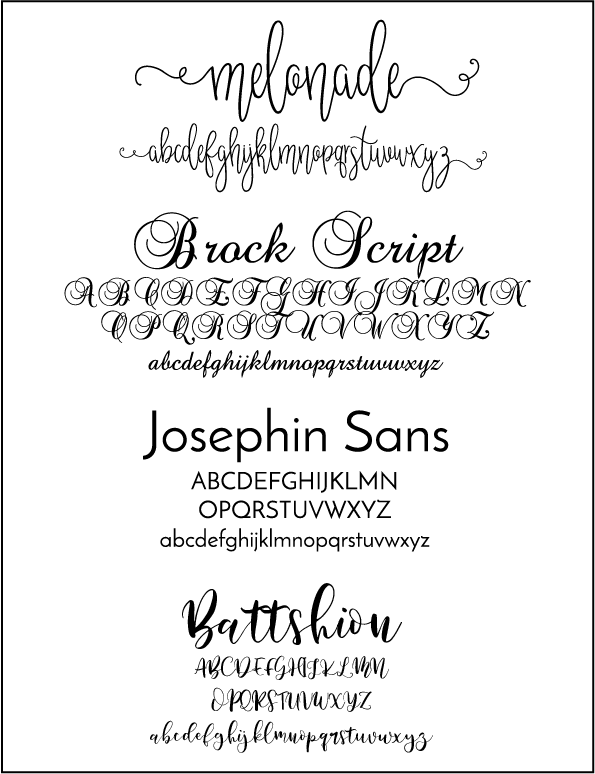 melonade
abcdefghyjklmnopqrstuvwxyz
Brock Script
ABCDEFGHIJKLMN
OPQRSTUVWXYZ
abcdefghijklmnopqrstuvwxyz
Josephin Sans
ABCDEFGHIJKLMN
OPQRSTUVWXYZ
abcdefghijklmnopqrstuvwxyz
Battshion
ABCDEFGHIJKLMN
OPQRSTUVWXYZ
abcdefghijklmnopqrstuvwxyz